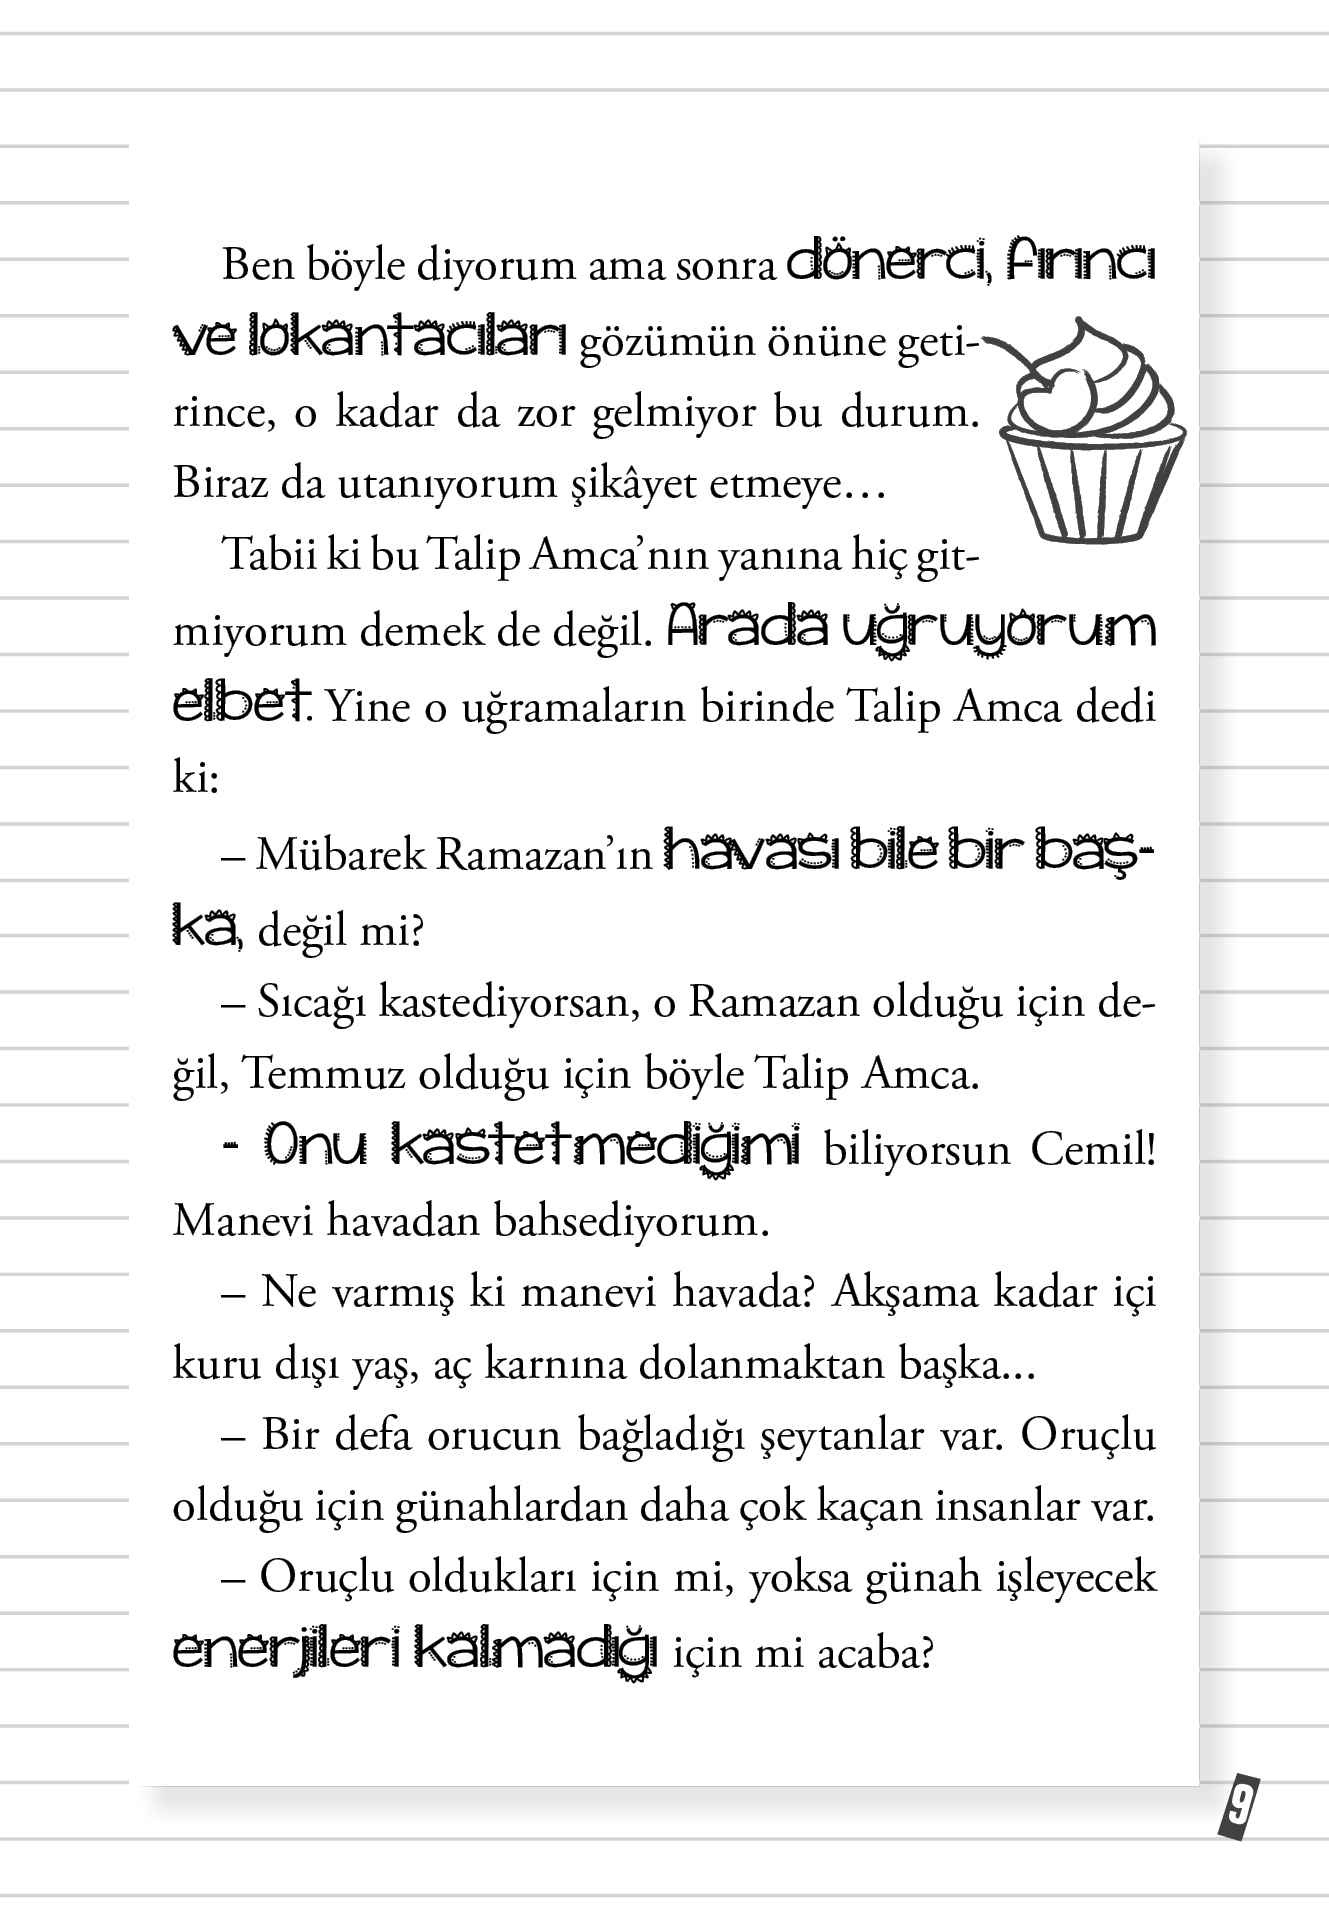 Ben böyle diyorum ama sonra dönerci, fırıncı
ve lokantacıları gözümün önüne geti-
rince, o kadar da zor gelmiyor bu durum.
Biraz da utanıyorum şikâyet etmeye…
Tabii ki bu Talip Amca’nın yanına hiç git-
miyorum demek de değil. Arada uğruyorum
elbet. Yine o uğramaların birinde Talip Amca dedi
ki:
– Mübarek Ramazan’ın havası bile bir baş-
ka, değil mi?
– Sıcağı kastediyorsan, o Ramazan olduğu için de-
ğil, Temmuz olduğu için böyle Talip Amca.
- Onu kastetmediğimi biliyorsun Cemil!
Manevi havadan bahsediyorum.
– Ne varmış ki manevi havada? Akşama kadar içi
kuru dışı yaş, aç karnına dolanmaktan başka...
– Bir defa orucun bağladığı şeytanlar var. Oruçlu
olduğu için günahlardan daha çok kaçan insanlar var.
– Oruçlu oldukları için mi, yoksa günah işleyecek
enerjileri kalmadığı için mi acaba?
9